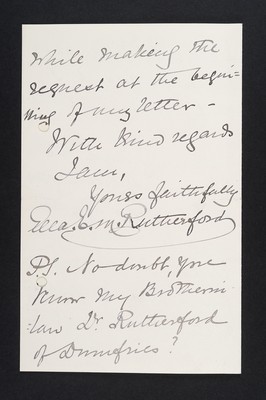 while making the
request at the begin=
ning of my letter -
With kind regards
I am,
Yours faithfully
E. M. Rutherford
P.S. No doubt, you
know my Brother in
law Dr Rutherford
of Dumfries?